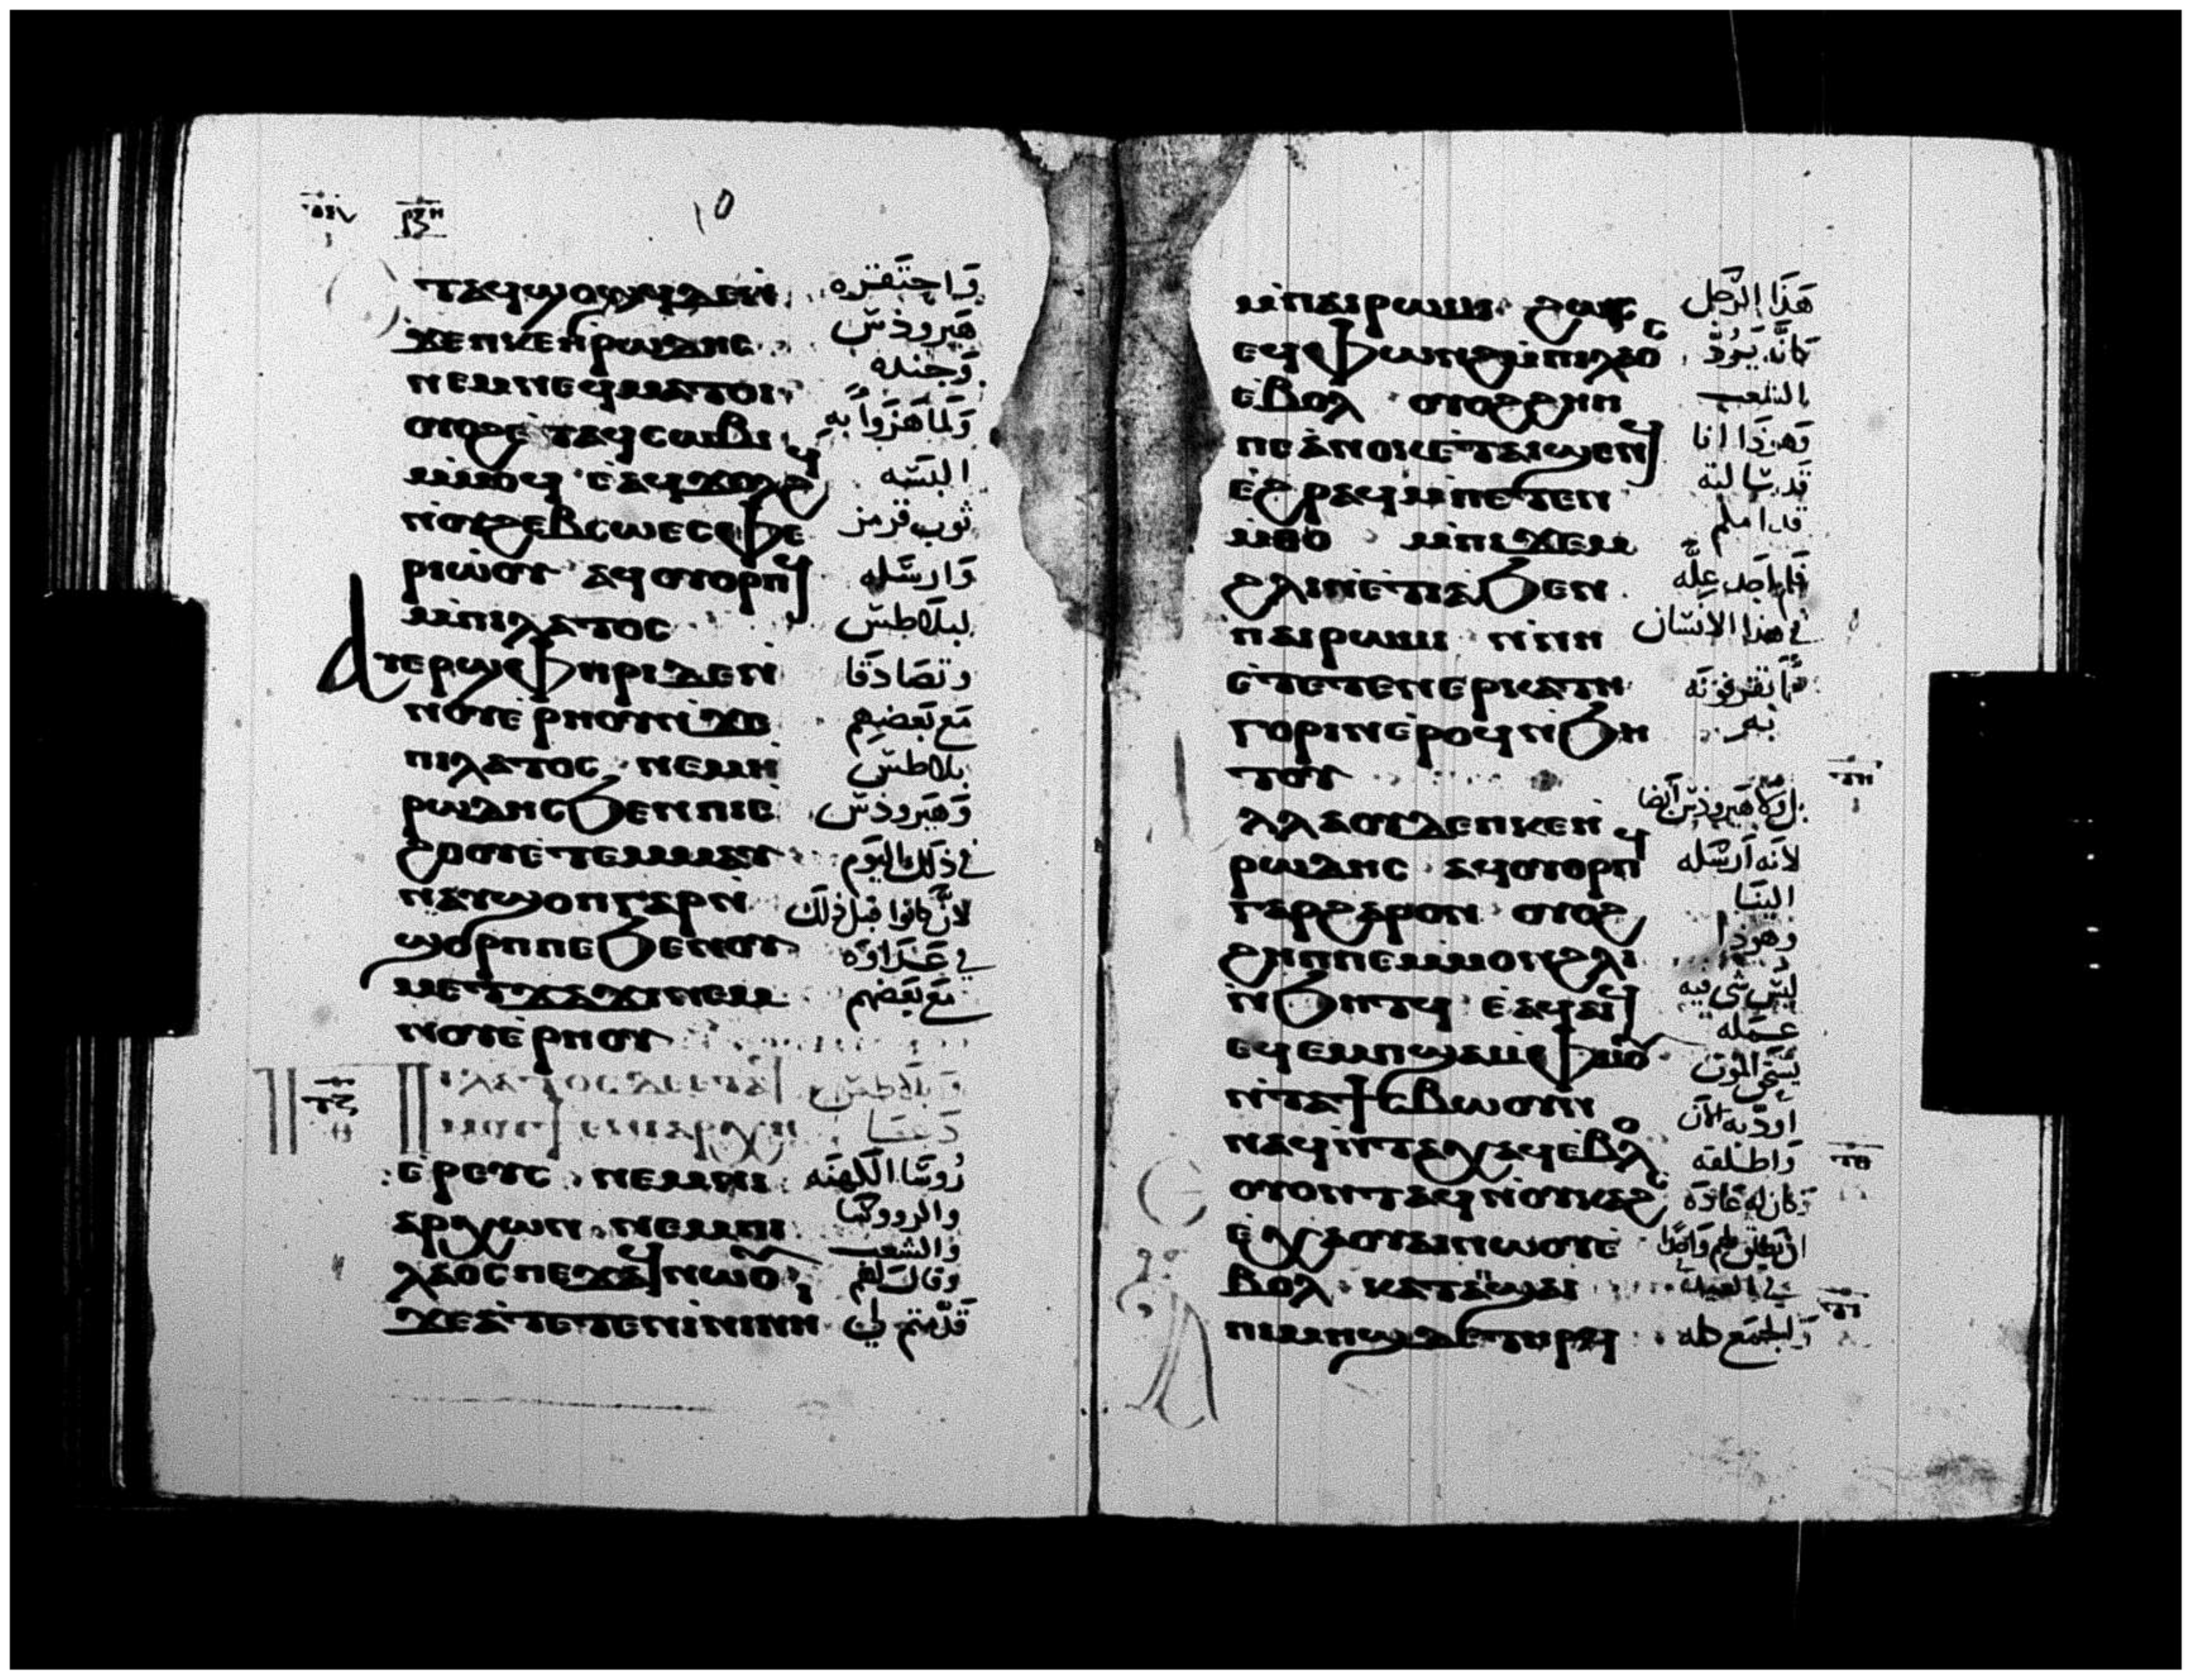 ⲧⲁϥϣⲟϣϥ ⲇⲉⲛ واحتقره
ϫⲉⲡⲕⲉⲏⲣⲱⲇⲏⲥ هيرودس
ⲛⲉⲙⲛⲉϥⲙⲁⲧⲟⲓ وجنده
ⲟⲩⲟϩⲉⲧⲁϥⲥⲱⲃⲓ ولما هزوا به
ⲙⲙⲟϥ ⲉⲁϥϫⲟⲗϩϥ البسه
ⲛⲟⲩϩⲉⲃⲥⲱⲉⲥⲫⲉ ثوب قرمز
ⲣⲓⲱⲟⲩ ⲁϥⲟⲩⲟⲣⲡϥ وارسله
ⲙⲡⲓⲗⲁⲧⲟⲥ لبيلاطس
ⲁⲩⲉⲣϣⲫⲏⲣⲓⲇⲉⲛ وتصادقا
ⲛⲟⲩⲉⲣⲏⲟⲩⲛϫⲉ مع بعضهم
ⲡⲓⲗⲁⲧⲟⲥ ⲛⲉⲙⲏ بيلاطس
ⲣⲱⲇⲏⲥϧⲉⲛⲡⲓⲉ وهيرودس
ϩⲟⲟⲩⲉⲧⲉⲙⲙⲁⲩ في ذلك اليوم
ⲛⲁⲩϣⲟⲡⲅⲁⲣⲛ لان كانوا قبل ذلك
ϣⲟⲣⲡⲡⲉϧⲉⲛⲟⲩ في عداوه
ⲙⲉⲧϫⲁϫⲓⲛⲉⲙ مع بعضهم
ⲛⲟⲩⲉⲣⲏⲟⲩ
ⲡⲓⲗⲁⲧⲟⲥ وبيلاطس
ⲙⲟⲩϯ ⲉⲛⲓⲁⲣⲭⲏ دعا
ⲉⲣⲉⲩⲥ ⲛⲉⲙⲛⲓ روسا الكهنه
ⲁⲣⲭⲱⲛ ⲛⲉⲙⲡⲓ والرووسا
ⲗⲁⲟⲥ ⲡⲉϫⲁϥⲛⲱⲟⲩ والشعب وقال لهم
ϫⲉⲁⲧⲉⲧⲉⲛⲓⲛⲓⲛⲏ قدمتم لي
ⲙⲡⲁⲓⲣⲱⲙⲓ ϩⲱⲥ هذا الرجل
ⲉϥⲫⲱⲛϩⲙⲡⲓⲗⲁⲟⲥ كانه يرد
ⲉⲃⲟⲗ ⲟⲩⲟϩϩⲏⲡ الشعب
ⲡⲉⲁⲛⲟⲕⲉⲧⲁⲓϣⲉⲛϥ وهوذا انا
ⲉϩⲣⲁϥⲙⲡⲉⲧⲉⲛ قد سالته
ⲙⲑⲟ ⲙⲡⲓϫⲉⲙ قدامكم
ϩⲗⲓⲛⲉⲧⲓⲁϧⲉⲛ فلم اجد عله
ⲡⲁⲓⲣⲱⲙⲓ ⲛⲛⲏ في هذا الانسان
ⲉⲧⲉⲧⲉⲛⲉⲣⲕⲁⲧⲏ مما تقرفونه
ⲅⲟⲣⲓⲛⲉⲣⲟϥⲛϧⲏ به
ⲧⲟⲩ
ⲁⲗⲗⲁⲟⲩⲇⲉⲡⲕⲉⲏ بل ولا هيرودس ايضا
ⲣⲱⲇⲏⲥ ⲁϥⲟⲩⲟⲣⲡϥ لانه ارسله
ⲅⲁⲣϩⲁⲣⲟⲛ ⲟⲩⲟϩ الينا
ϩⲏⲡⲡⲉⲙⲙⲟⲛϩⲗⲓ وهوذا
ⲛϧⲏⲧϥ ⲉⲁϥⲁⲓϥ ليس شي فيه عمله
ⲉϥⲉⲙⲡϣⲁⲙⲫⲙⲟⲩ يستحق الموت
ⲛⲧⲁϯⲥⲃⲱⲟⲩⲛ اودبه الان
ⲛⲁϥⲛⲧⲁⲭⲁϥⲉⲃⲟⲗ واطلقه
ⲟⲩⲟⲛⲧⲁϥⲛⲟⲩⲕⲁϩⲥ وكان له عاده
ⲉⲭⲁⲟⲩⲁⲓⲛⲱⲟⲩⲉ ان يطلق لهم واحدا
ⲃⲟⲗ ⲕⲁⲧⲁϣⲁⲓ في العيد
ⲡⲓⲙⲏϣⲇⲉⲧⲏⲣϥ والجمع كله